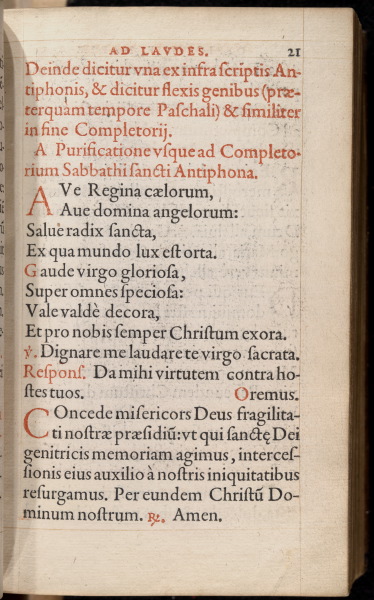 AD LAVDES. 21
Deinde dicitur vna ex infra ſcriptis An-
tiphonis, & dicitur flexis genibus (præ-
terquàm tempore Paſchali) & ſimiliter
in fine Completorij.
A Purificatione vſque ad Completo-
rium Sabbathi ſancti Antiphona.
AVe Regina cælorum,
Aue domina angelorum:
Salue radix ſancta,
Ex qua mundo lux eſt orta.
Gaude virgo glorioſa,
Super omnes ſpecioſa:
Vale valdè decora,
Et pro nobis ſemper Chriſtum exora.
℣. Dignare me laudare te virgo sacrata.
Reſponſ. Da mihi virtutem contra ho-
ſtes tuos. Oremus.
COncede miſericors Deus fragilita-
ti noſtræ præſidiũ: vt qui ſanctę Dei
genitricis memoriam agimus, interceſ-
ſionis eius auxilio à noſtris iniquitatibus
reſurgamus. Per eundem Chriſtũ Do-
minum noſtrum. ℟. Amen.